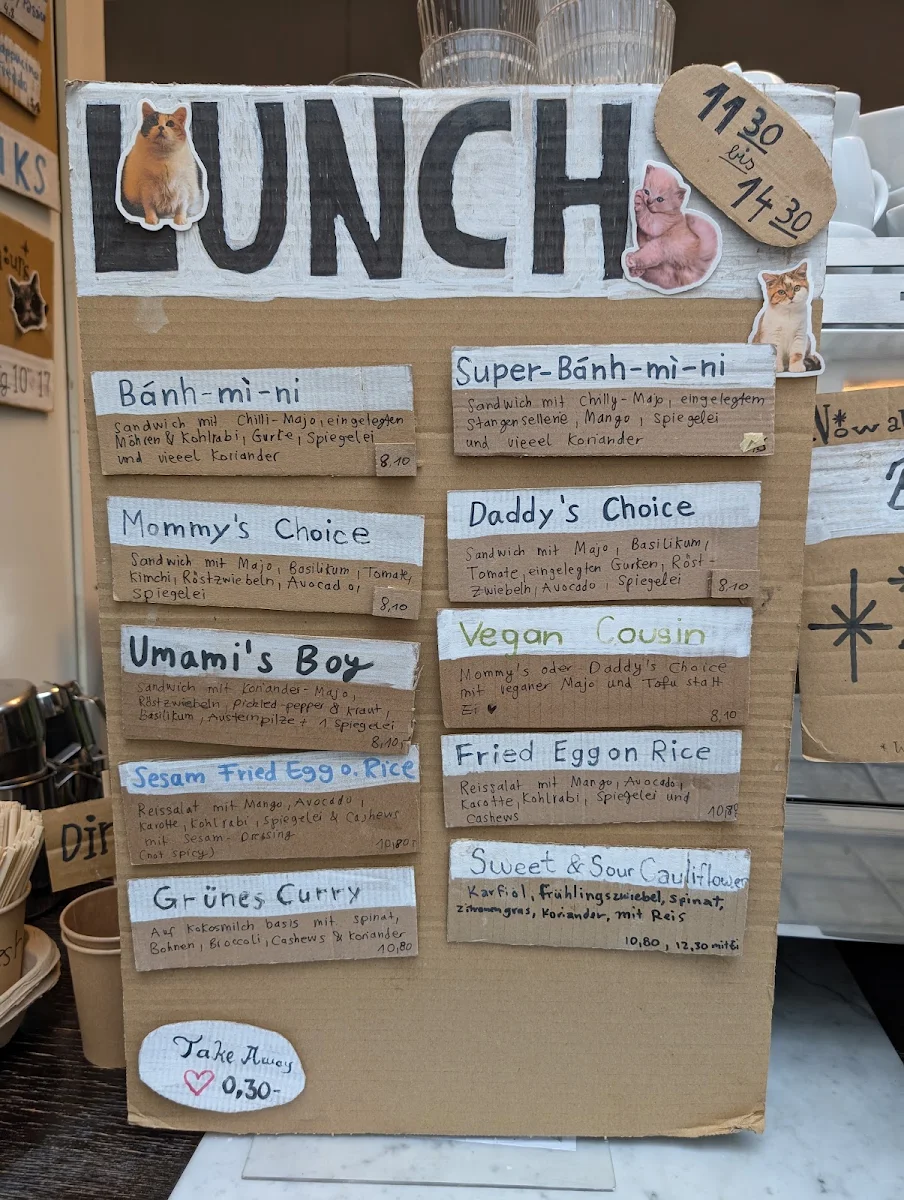 LUNCH
11 30
bis
14 30
Bánh-mì-ni
Sandwich mit Chilli-Majo, eingelegten
Möhren & Kohlrabi, Gurke, Spiegelei
und vieeel Koriander
8,10
Super-Bánh-mì-ni
Sandwich mit Chilly-Majo, eingelegtem
Stangensellerie, Mango, Spiegelei
und vieeel Koriander
Mommy's Choice
Sandwich mit Majo, Basilikum, Tomate,
Kimchi, Röstzwiebeln, Avocado,
Spiegelei
8,10
Daddy's Choice
Sandwich mit Majo, Basilikum,
Tomate, eingelegten Gurken, Röst-
zwiebeln, Avocado, Spiegelei
8,10
Umami's Boy
Sandwich mit Koriander-Majo,
Röstzwiebeln, Pickled-pepper & Kraut,
Basilikum, Austernpilze + 1 Spiegelei
8,10
Vegan Cousin
Mommy's oder Daddy's Choice
mit veganer Majo und Tofu statt
Ei ♥
8,10
Sesam Fried Egg o. Rice
Reissalat mit Mango, Avocado,
Karotte, Kohlrabi, Spiegelei & Cashews
mit Sesam-Dressing
(not spicy)
10,80
Fried Egg on Rice
Reissalat mit Mango, Avocado,
Karotte, Kohlrabi, Spiegelei und
Cashews
10,80
Grünes Curry
Auf Kokosmilch basis mit Spinat,
Bohnen, Broccoli, Cashews & Koriander
10,80
Sweet & Sour Cauliflower
Karfiol, Frühlingszwiebel, Spinat,
Zitronengras, Koriander, mit Reis
10,80, 12,30 mit Ei
Take Away
♡ 0,30-
NKS
10
Now
Dir